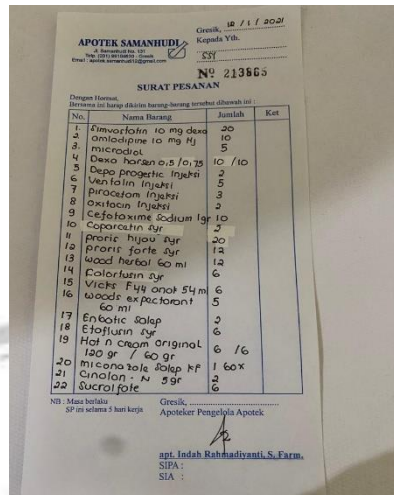 Gresik, 12 / 1 / 2021
APOTEK SAMANHUDI
Kepada Yth.
Jl. Samanhudi No. 121
Email : apotek.samanhudi12@gmail.com
Nº 213865
SURAT PESANAN
Dengan Hormat,
Bersama ini harap dikirim barang-barang tersebut dibawah ini :
No. Nama Barang Jumlah Ket
1. Simvastatin 10 mg dexa 20
2. amlodipine 10 mg Hj 10
3. microdiol 5
4 Dexa harsen 0,5/0,75 10 /10
5 Depo progestic Injeksi 2
6 Ventolin Injeksi 5
7 piracetam Injeksi 3
8 oxitocin Injeksi 2
9 Cefotaxime Sodium 1gr 10
10 Coparcetin syr 2
11 proris hijau syr 20
12 proris forte syr 12
13 wood herbal 60 ml 12
14 Colorfusin syr 6
15 Vicks F44 anak 54 ml 6
16 woods expectorant 5
60 ml
17 Enbatic Salep 2
18 Etaflusin syr 6
19 Hot n cream original
120 gr / 60 gr 6 /6
20 miconazole Salep KF 1 box
21 Cinolon - N 5gr 2
22 Sucralfate 6
NB : Masa berlaku
SP ini selama 5 hari kerja
Gresik, ..............................
Apoteker Pengelola Apotek
apt. Indah Rahmadiyanti, S. Farm.
SIPA :
SIA :